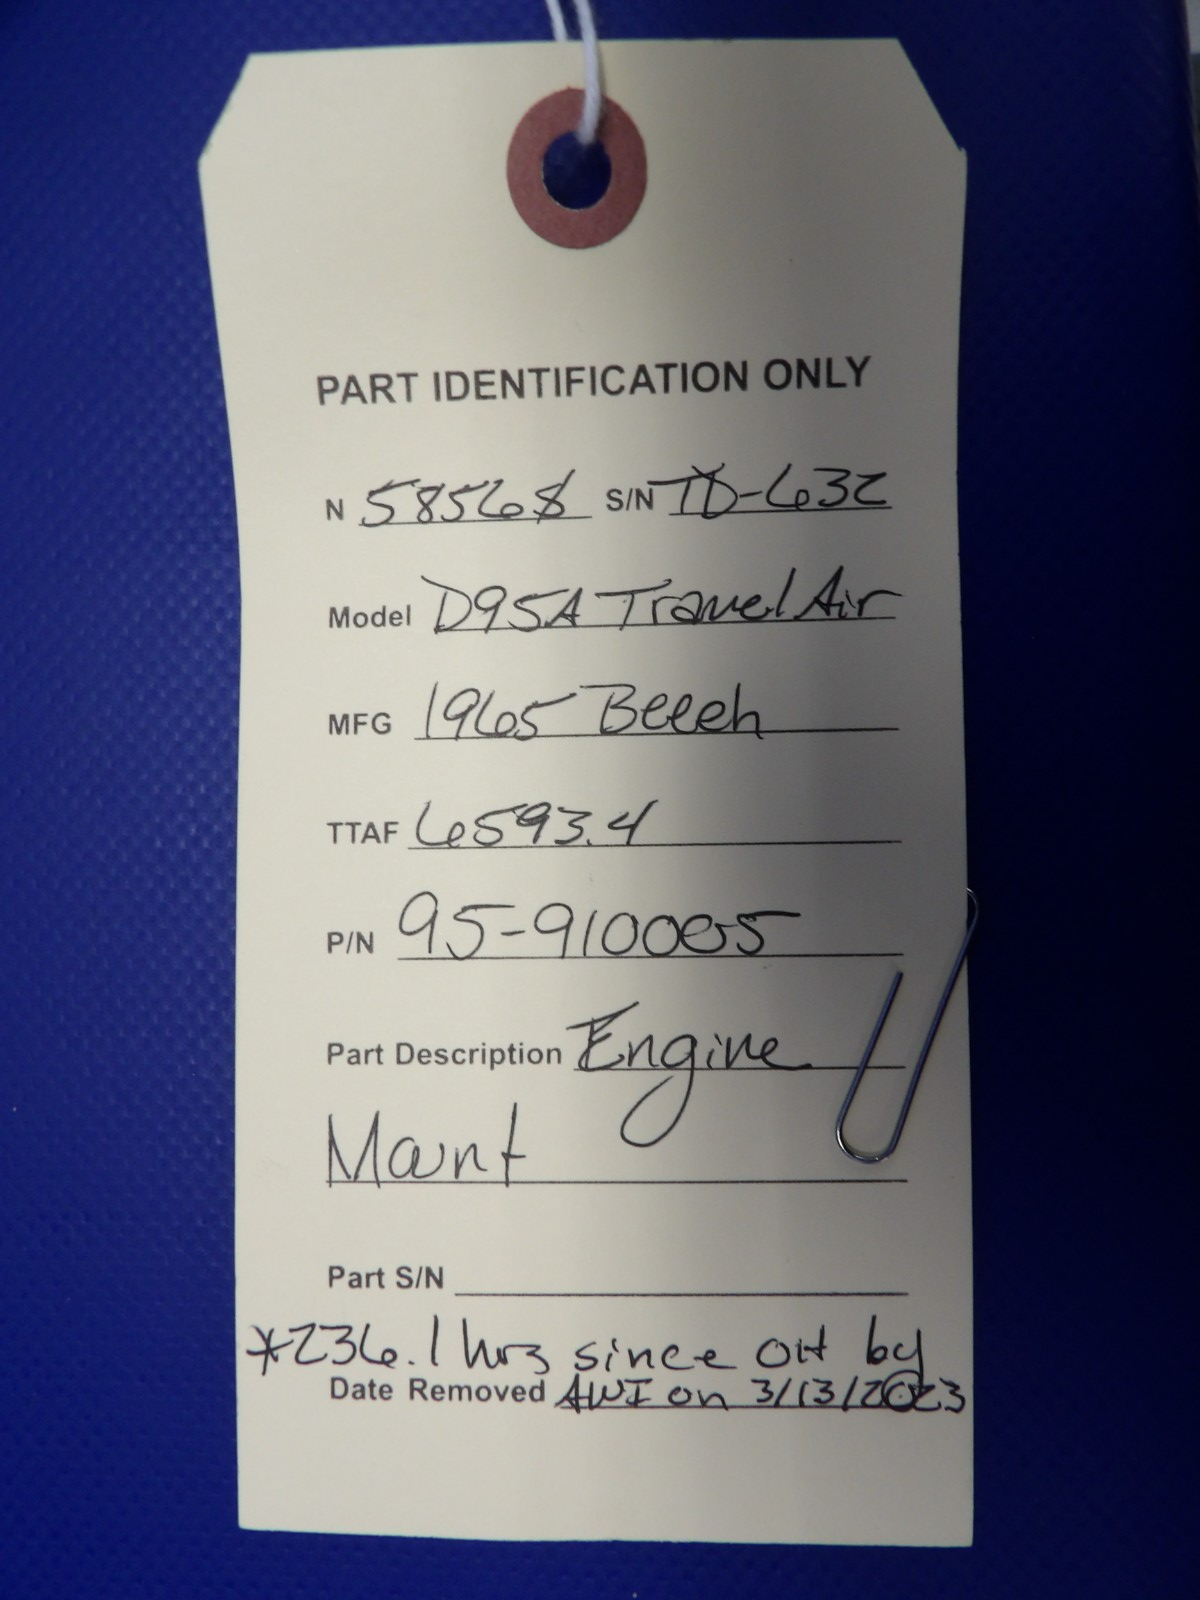 PART IDENTIFICATION ONLY
N 58568 S/N TD-632
Model D95A Travel Air
MFG 1965 Beech
TTAF 6593.4
P/N 95-910005
Part Description Engine
Mount
Part S/N
*236.1 hrs since OH by
Date Removed AWI on 3/13/2023